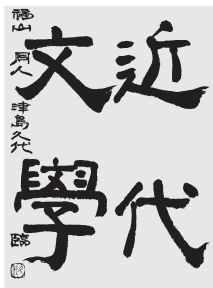 近代
文學
福山 同人 津島久代 臨